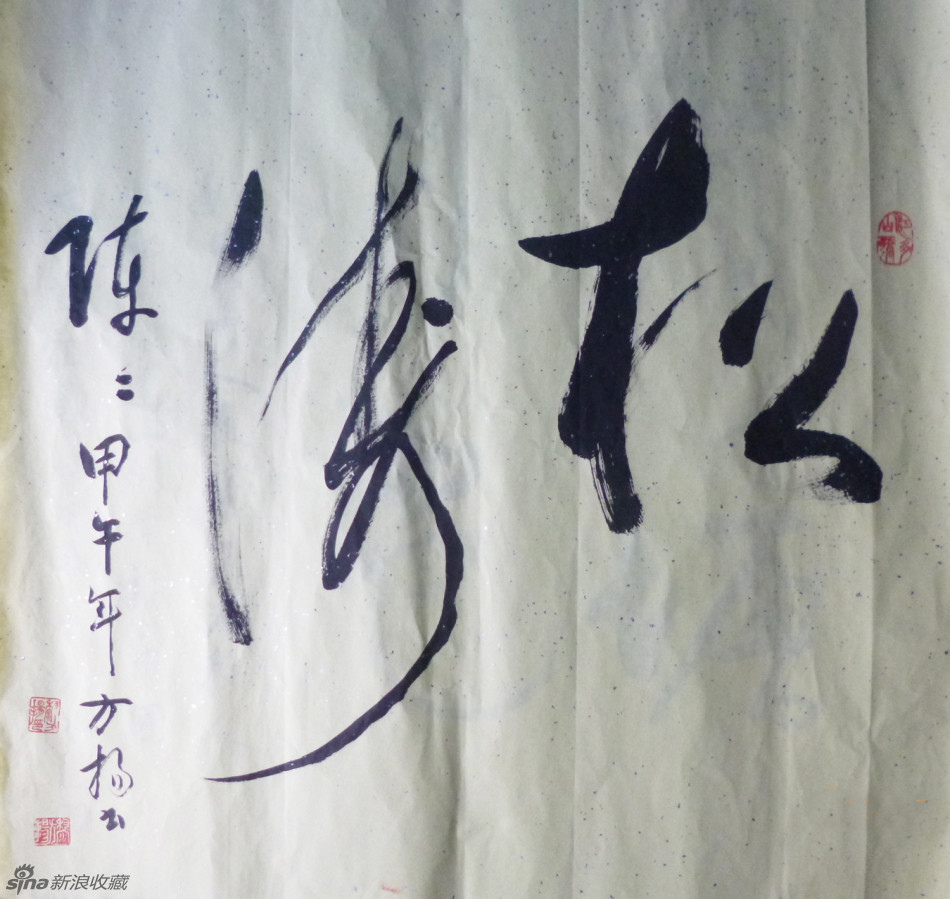 松涛
陈〻甲午年方扬书
sina新浪收藏